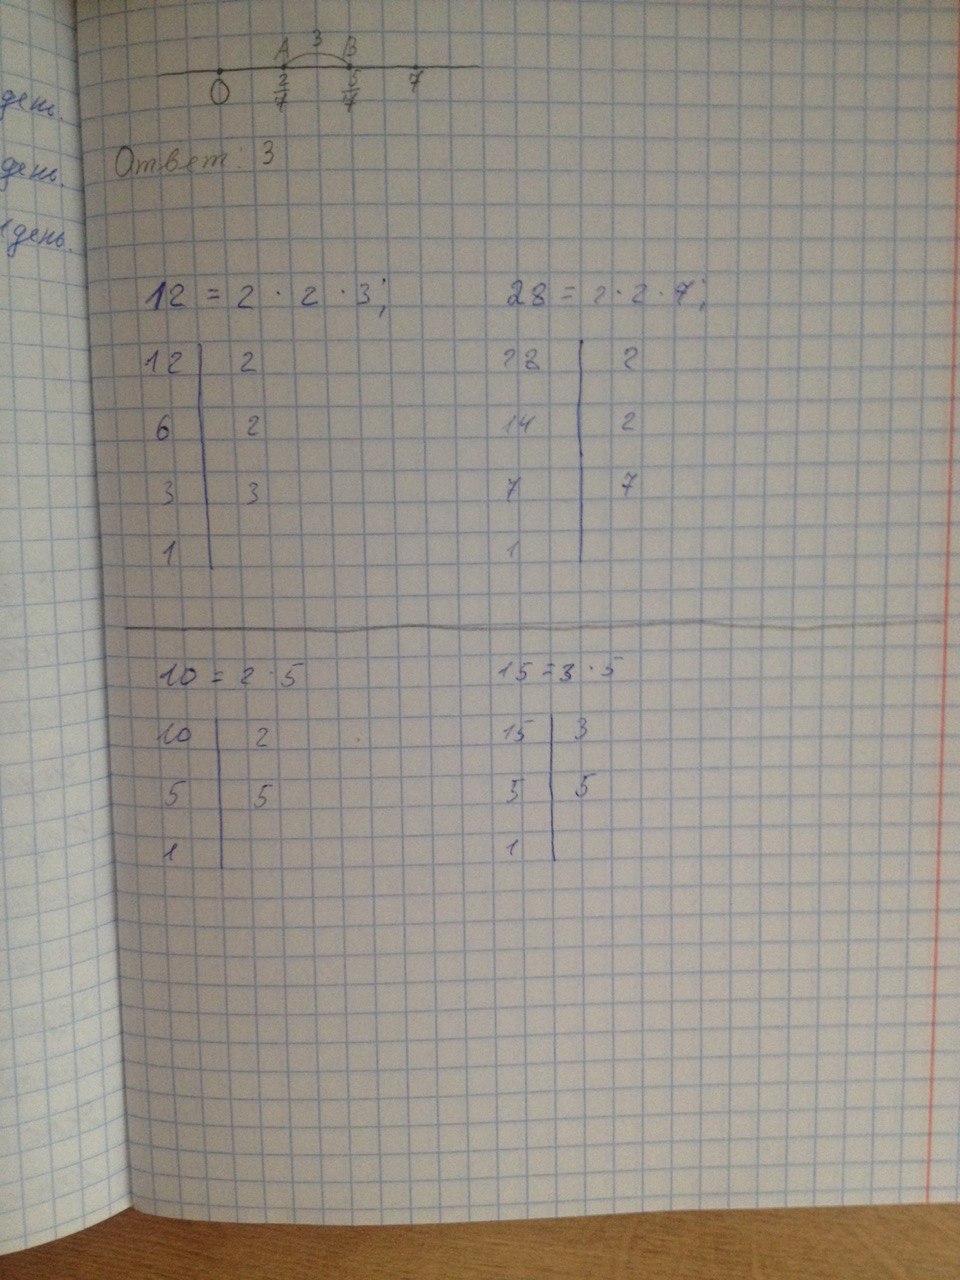 день.
день.
1 день.
A 3 B
0 2/7 5/7 7
Ответ: 3
12 = 2 · 2 · 3; 28 = 2 · 2 · 7;
12 | 2 28 | 2
6 | 2 14 | 2
3 | 3 7 | 7
1 | 1 |
10 = 2 · 5 15 = 3 · 5
10 | 2 15 | 3
5 | 5 5 | 5
1 | 1 |